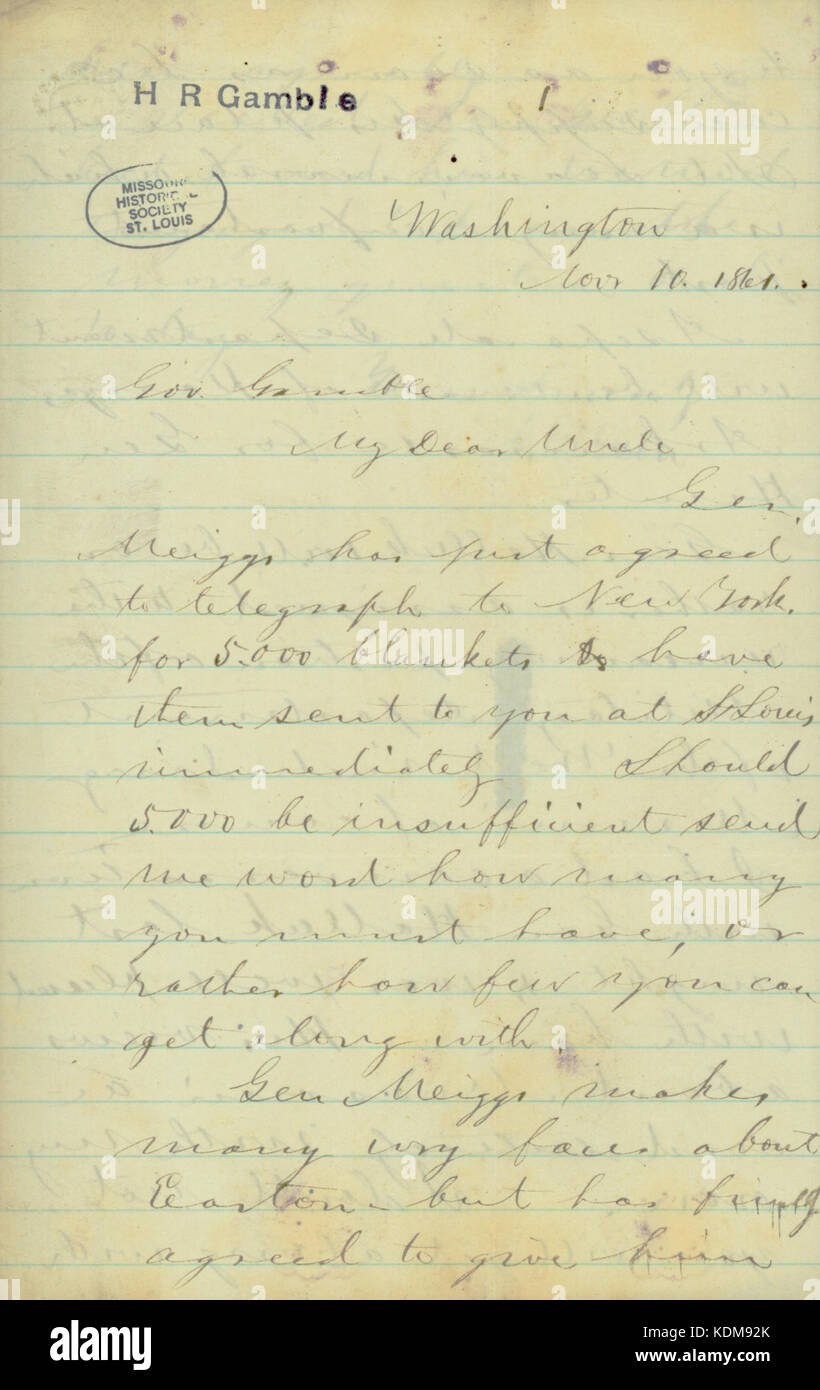 H R Gamble
1
MISSOURI
HISTORICAL
SOCIETY
ST. LOUIS
Washington
Nov 10. 1861.
Gov. Gamble
My Dear Uncle
Gen.
Meiggs has just agreed
to telegraph to New York.
for 5.000 blankets to have
them sent to you at St Louis
immediately Should
5.000 be insufficient send
me word how many
you must have, or
rather how few you can
get along with.
Gen Meiggs makes
many wry faces about
Easton - but has
agreed to give him
alamy
Image ID: KDM92K
www.alamy.com